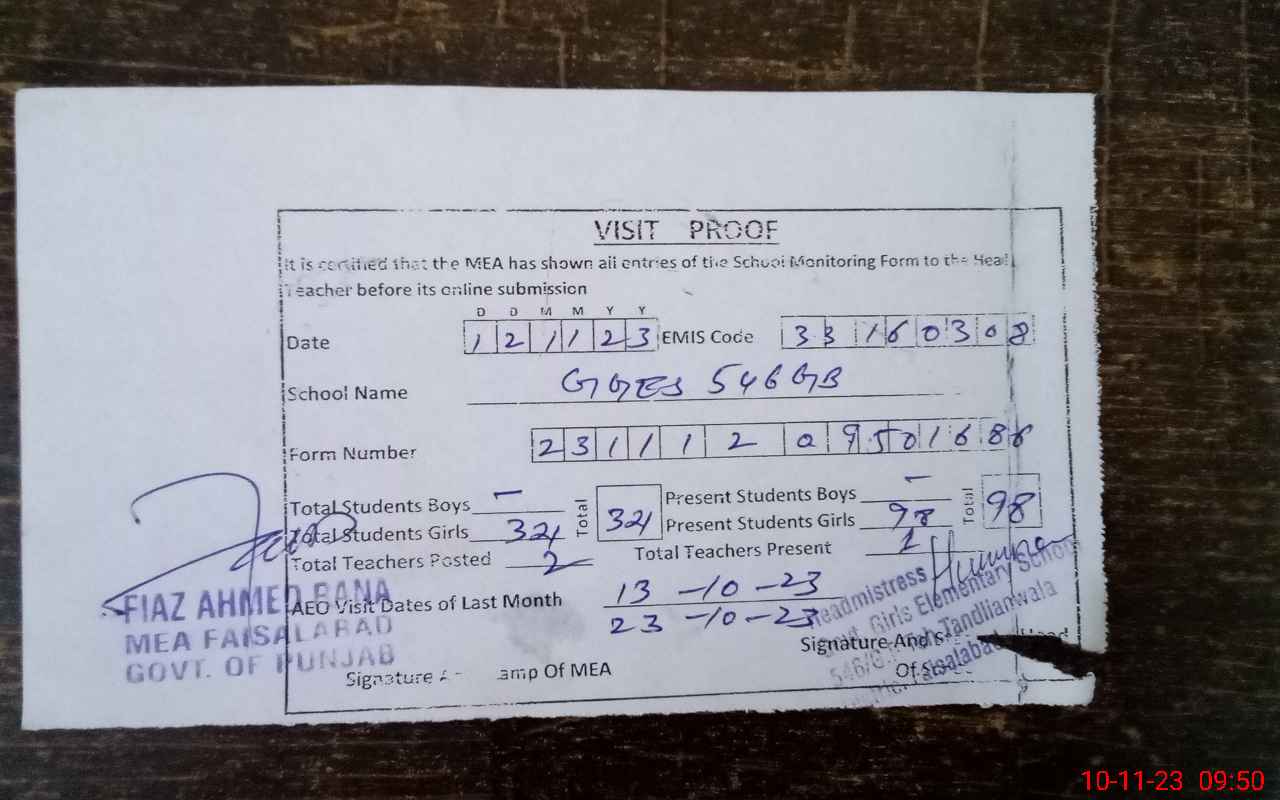 VISIT PROOF
It is certified that the MEA has shown all entries of the School Monitoring Form to the Head
Teacher before its online submission
D D M M Y Y
Date 1 2 1 1 2 3 EMIS Code 3 3 1 6 0 3 0 8
School Name GGES 546 GB
Form Number 2 3 1 1 1 2 0 9 5 0 1 6 8 8
Total Students Boys - Total 321 Present Students Boys - Total 98
Total Students Girls 321 Present Students Girls 98
Total Teachers Posted 2 Total Teachers Present 1
AEO Visit Dates of Last Month 13-10-23
23-10-23
FIAZ AHMED RANA
MEA FAISALABAD
GOVT. OF PUNJAB
Signature Stamp Of MEA
Headmistress
Govt. Girls Elementary School
546/G.B. Tandlianwala
Faisalabad
Signature And Head
Of
10-11-23 09:50